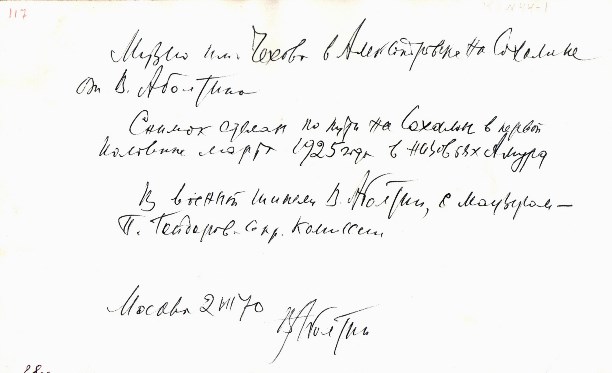 117
Музею им. Чехова в Александровске на Сахалине
от В. Аболтина
Снимок сделан по пути на Сахалин в первой
половине марта 1925 года в низовьях Амура
В военной шинели В. Аболтин, с маузером –
П. Гайдаров. секр. Комиссии
Москва 2 VII 70
В Аболтин